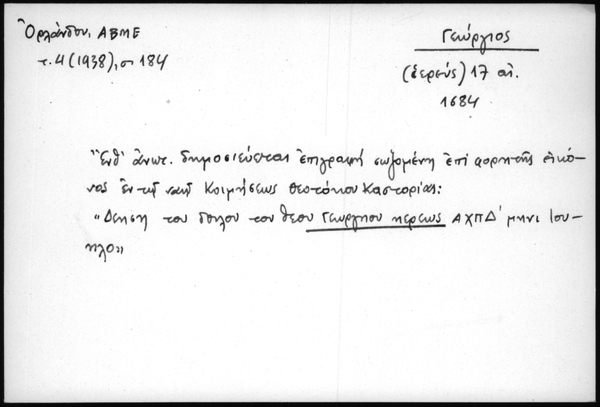 Ὀρλάνδου, ΑΒΜΕ
τ. 4 (1938), σ 184
Γεώργιος
(ἱερεύς) 17 αἰ.
1684
"Ενθ' ἀνωτ. δημοσιεύεται ἐπιγραφή σωζομένη ἐπί φορητῆς εἰκό-
νος ἐν τῷ ναῷ Κοιμήσεως Θεοτόκου Καστορίας:
«Δεηση του δουλου του θεου Γεωργηου ηερεως ΑΧΠΔ' μηνι Ιου-
ηλο»